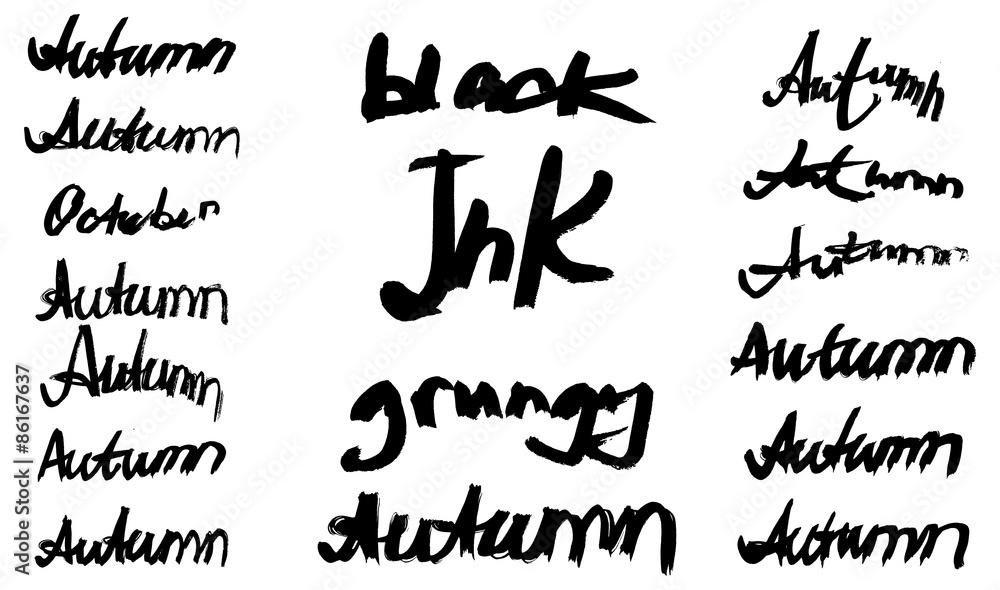 Autumn
Autumn
October
Autumn
Autumn
Autumn
Autumn
black
Ink
grungy
Autumn
Autumn
Autumn
Autumn
Autumn
Autumn
Autumn
Adobe Stock | #86167637